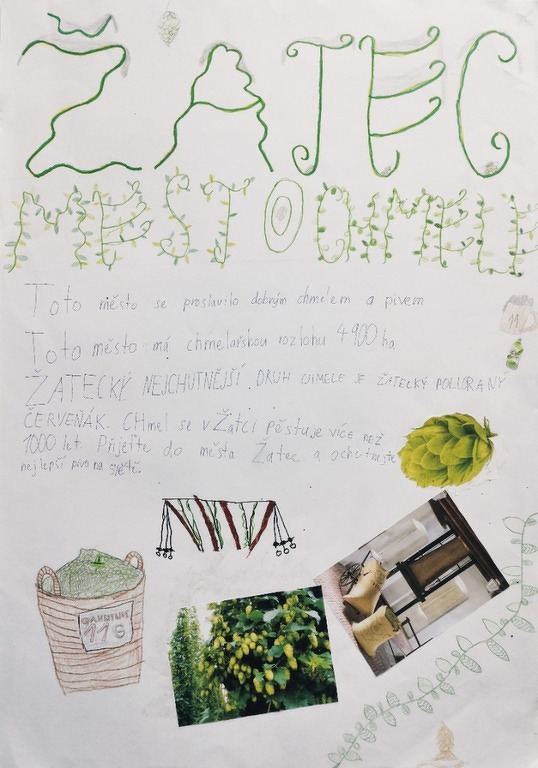 ŽATEC
MĚSTO CHMELE
Toto město se proslavilo dobrým chmelem a pivem
Toto město má chmelařskou rozlohu 4 900 ha
ŽATECKÝ NEJCHUTNĚJŠÍ DRUH CHMELE JE ŽATECKÝ POLORANÝ
ČERVEŇÁK. CHmel se v Žatci pěstuje více než
1000 let. Přijeďte do města Žatec a ochutnejte
nejlepší pivo na světě.
11
11°